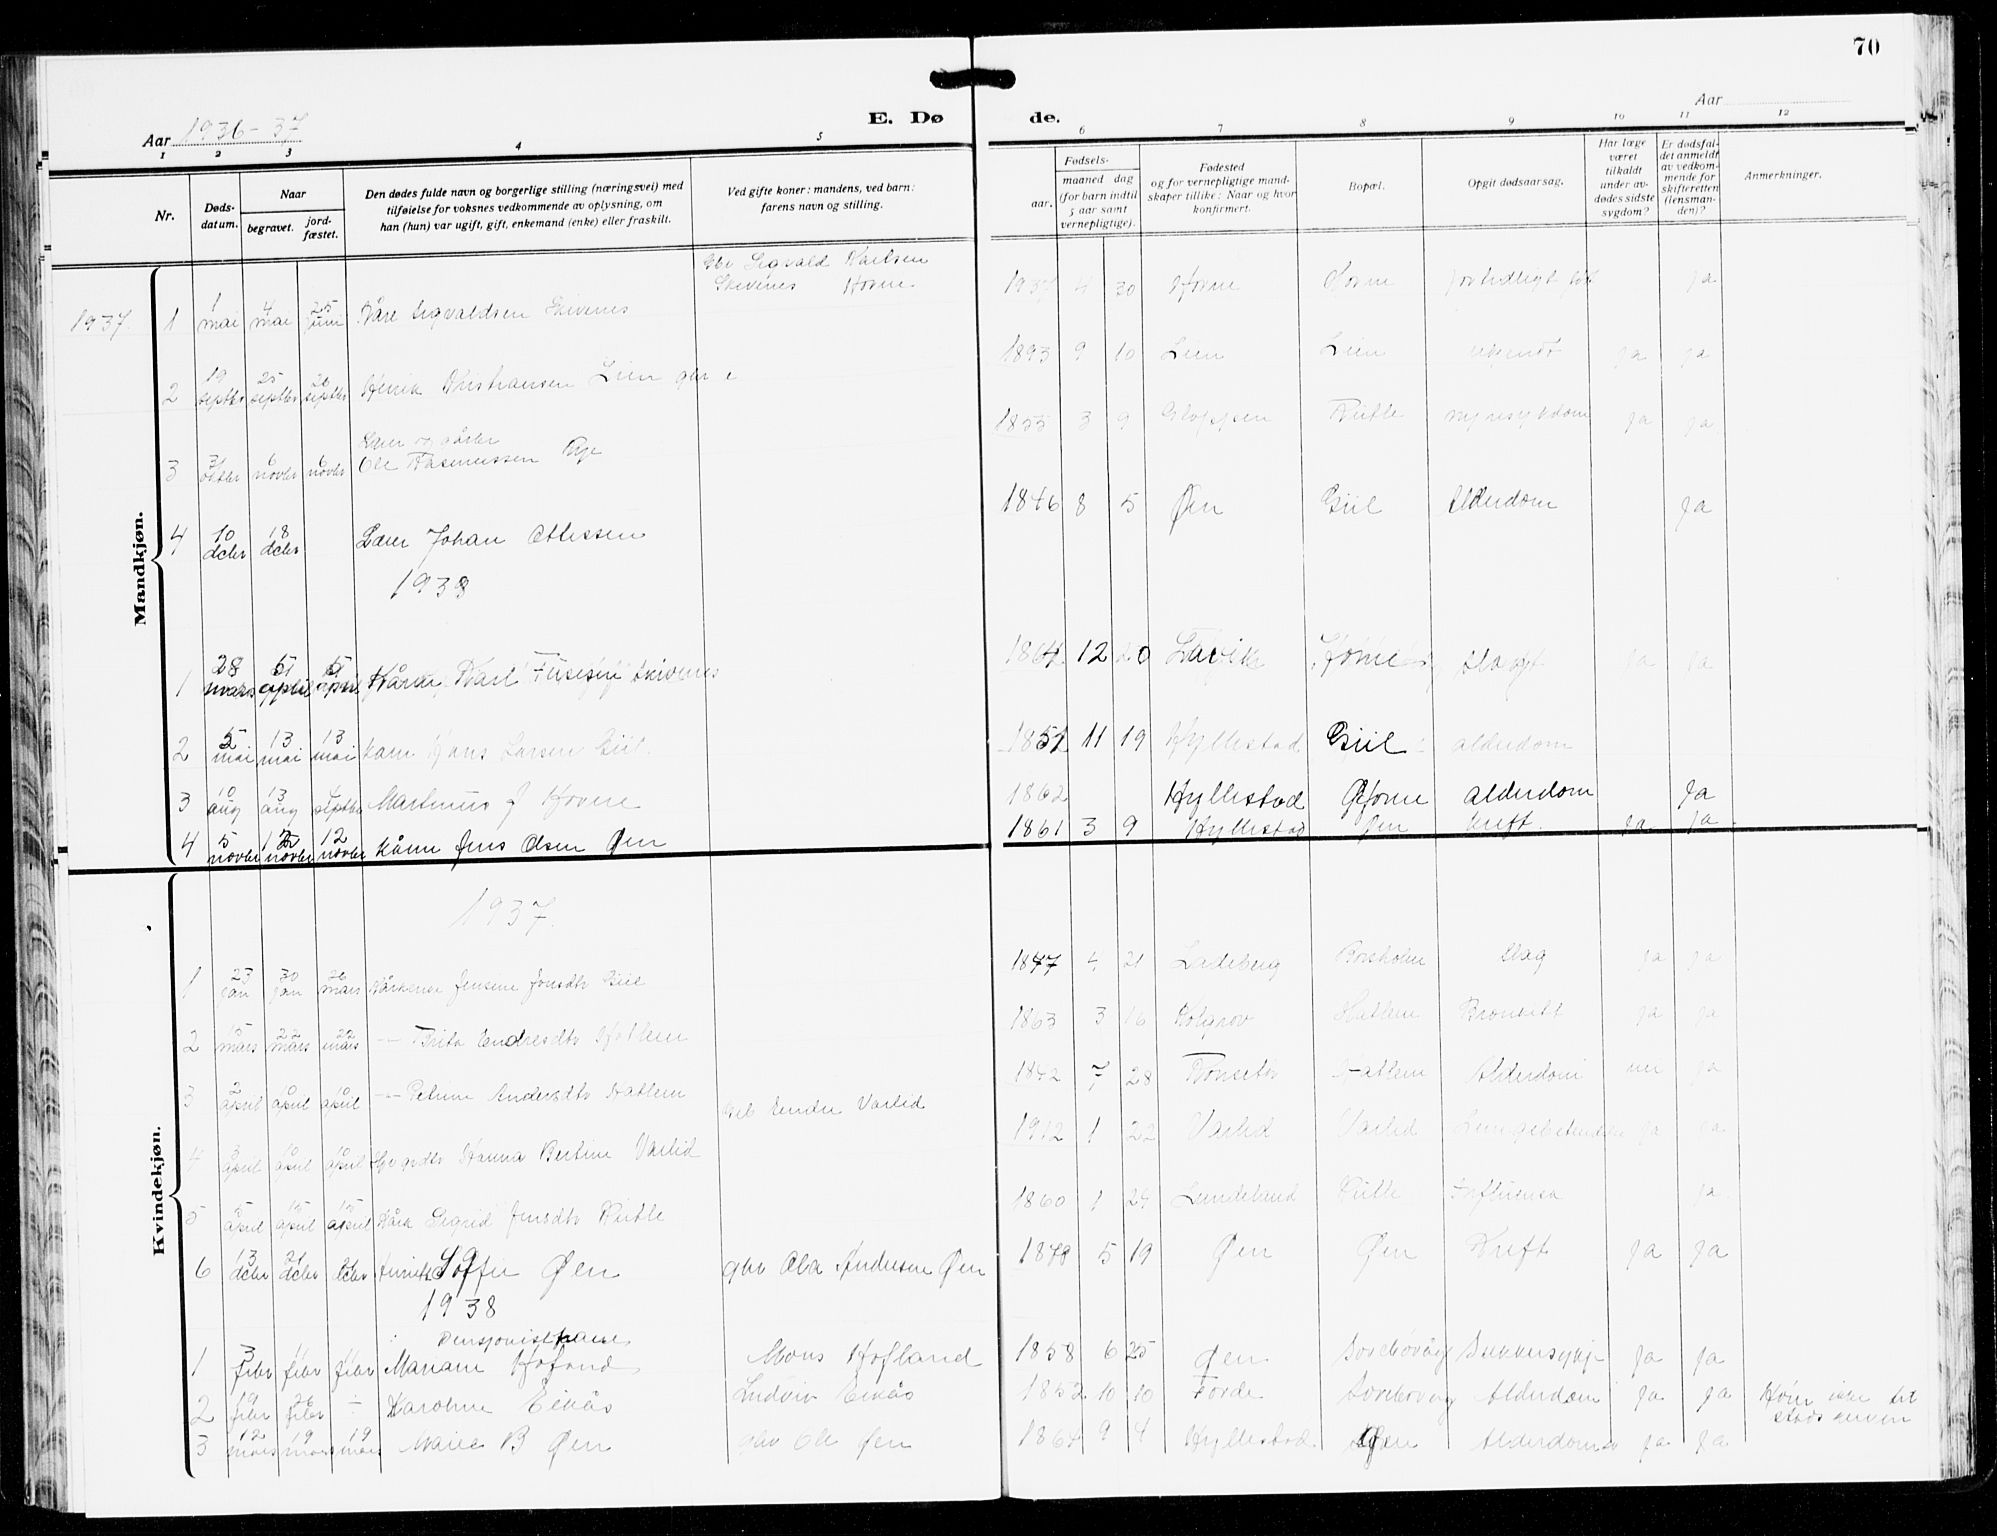 70
Aar 1936-37
E. Dø de.
Aar
1 2 3 4 5 6 7 8 9 10 11 12
Nr.
Døds-datum.
Naar
begravet.
jord-fæstet.
Den dødes fulde navn og borgerlige stilling (næringsvei) med
tilføielse for voksnes vedkommende av oplysning, om
han (hun) var ugift, gift, enkemand (enke) eller fraskilt.
Ved gifte koner: mandens, ved barn:
farens navn og stilling.
Fødsels-
aar.
maaned dag
(for barn indtil
5 aar samt
vernepligtige).
Fødested
og for vernepligtige mand-
skaper tillike: Naar og hvor
konfirmert.
Bopæl.
Opgit dødsaarsag.
Har læge
været
tilkaldt
under av-
dødes sidste
sygdom?
Er dødsfal-
det anmeldt
av vedkom-
mende for
skifteretten
(lensman-
den)?
Anmerkninger.
Mandkjøn.
1937. 1 1 mai 4 mai 25 juni Kåre Sigvaldsen Skivenes Gbr Sigvald Karlsen Skivenes Hovne 1937 4 30 Hovne Hovne Ja
2 19 septbr 25 septbr 26 septbr Henrik Kristiansen Lien gbr 1893 9 10 Lien Lien ukendt Ja Ja
3 31 oktbr 6 novbr 6 novbr Ole Rasmussen Rye 1855 3 9 Gloppen Rutle nyresykdom Ja Ja
4 10 dcbr 18 dcbr Johan Ottessen 1846 8 5 Øen Giil Alderdom Ja
1938
1 28 mars 5 april 5 april Karl Skivenes 1864 12 20 Lavik Slag Ja Ja
2 5 mai 13 mai 13 mai Kårm Hans Larsen Giil 1851 11 19 Hyllestad Giil alderdom
3 10 aug 13 aug 4 septbr Martinus J Hovne 1862 Hyllestad Hovne alderdom Ja
4 5 novbr 12 novbr 12 novbr Kårm Jens Olsen Øen 1861 3 9 Hyllestad Øen kreft Ja Ja
Kvindekjøn.
1937.
1 23 jan 30 jan 26 mars Kårkone Jensine Jonsdtr Giil 1847 4 21 Ladeberg Slag Ja Ja
2 15 mars 22 mars 22 mars -- Brita Endresdtr Hatlem 1863 3 16 Kolgrov Hatlem Bronkitt Ja Ja
3 2 april 10 april 10 april -- Petrine Andersdtr Hatlem 1842 7 28 Rönsetör Hatlem Alderdom nei Ja
4 3 april 10 april 10 april Hanna Bertine Varlid Gbr Endre Varlid 1912 1 22 Varlid Varlid Lungebetendelse Ja Ja
5 5 april 15 april 15 april Kårk Sigrid Jensdtr Rutle 1860 1 24 Lundelund Rutle Influensa Ja
6 13 dcbr 21 dcbr 21 dcbr Soffie Øen gbr Ola Andersen Øen 1878 5 19 Øen Øen Kreft Ja Ja
1938
1 3 febr febr febr Mariane Hofland Mons Hofland 1858 6 25 Øen Sørebøvåg Sukkersyke Ja Ja
2 19 febr 26 febr ÷ Karoline Eikås Ludvik Eikås 1852 10 10 Førde Sørebøvåg Alderdom Ja Ja
3 12 mars 19 mars 19 mars Marie B Øen gbr Ole Øen 1864 9 4 Hyllestad Øen Alderdom Ja Ja